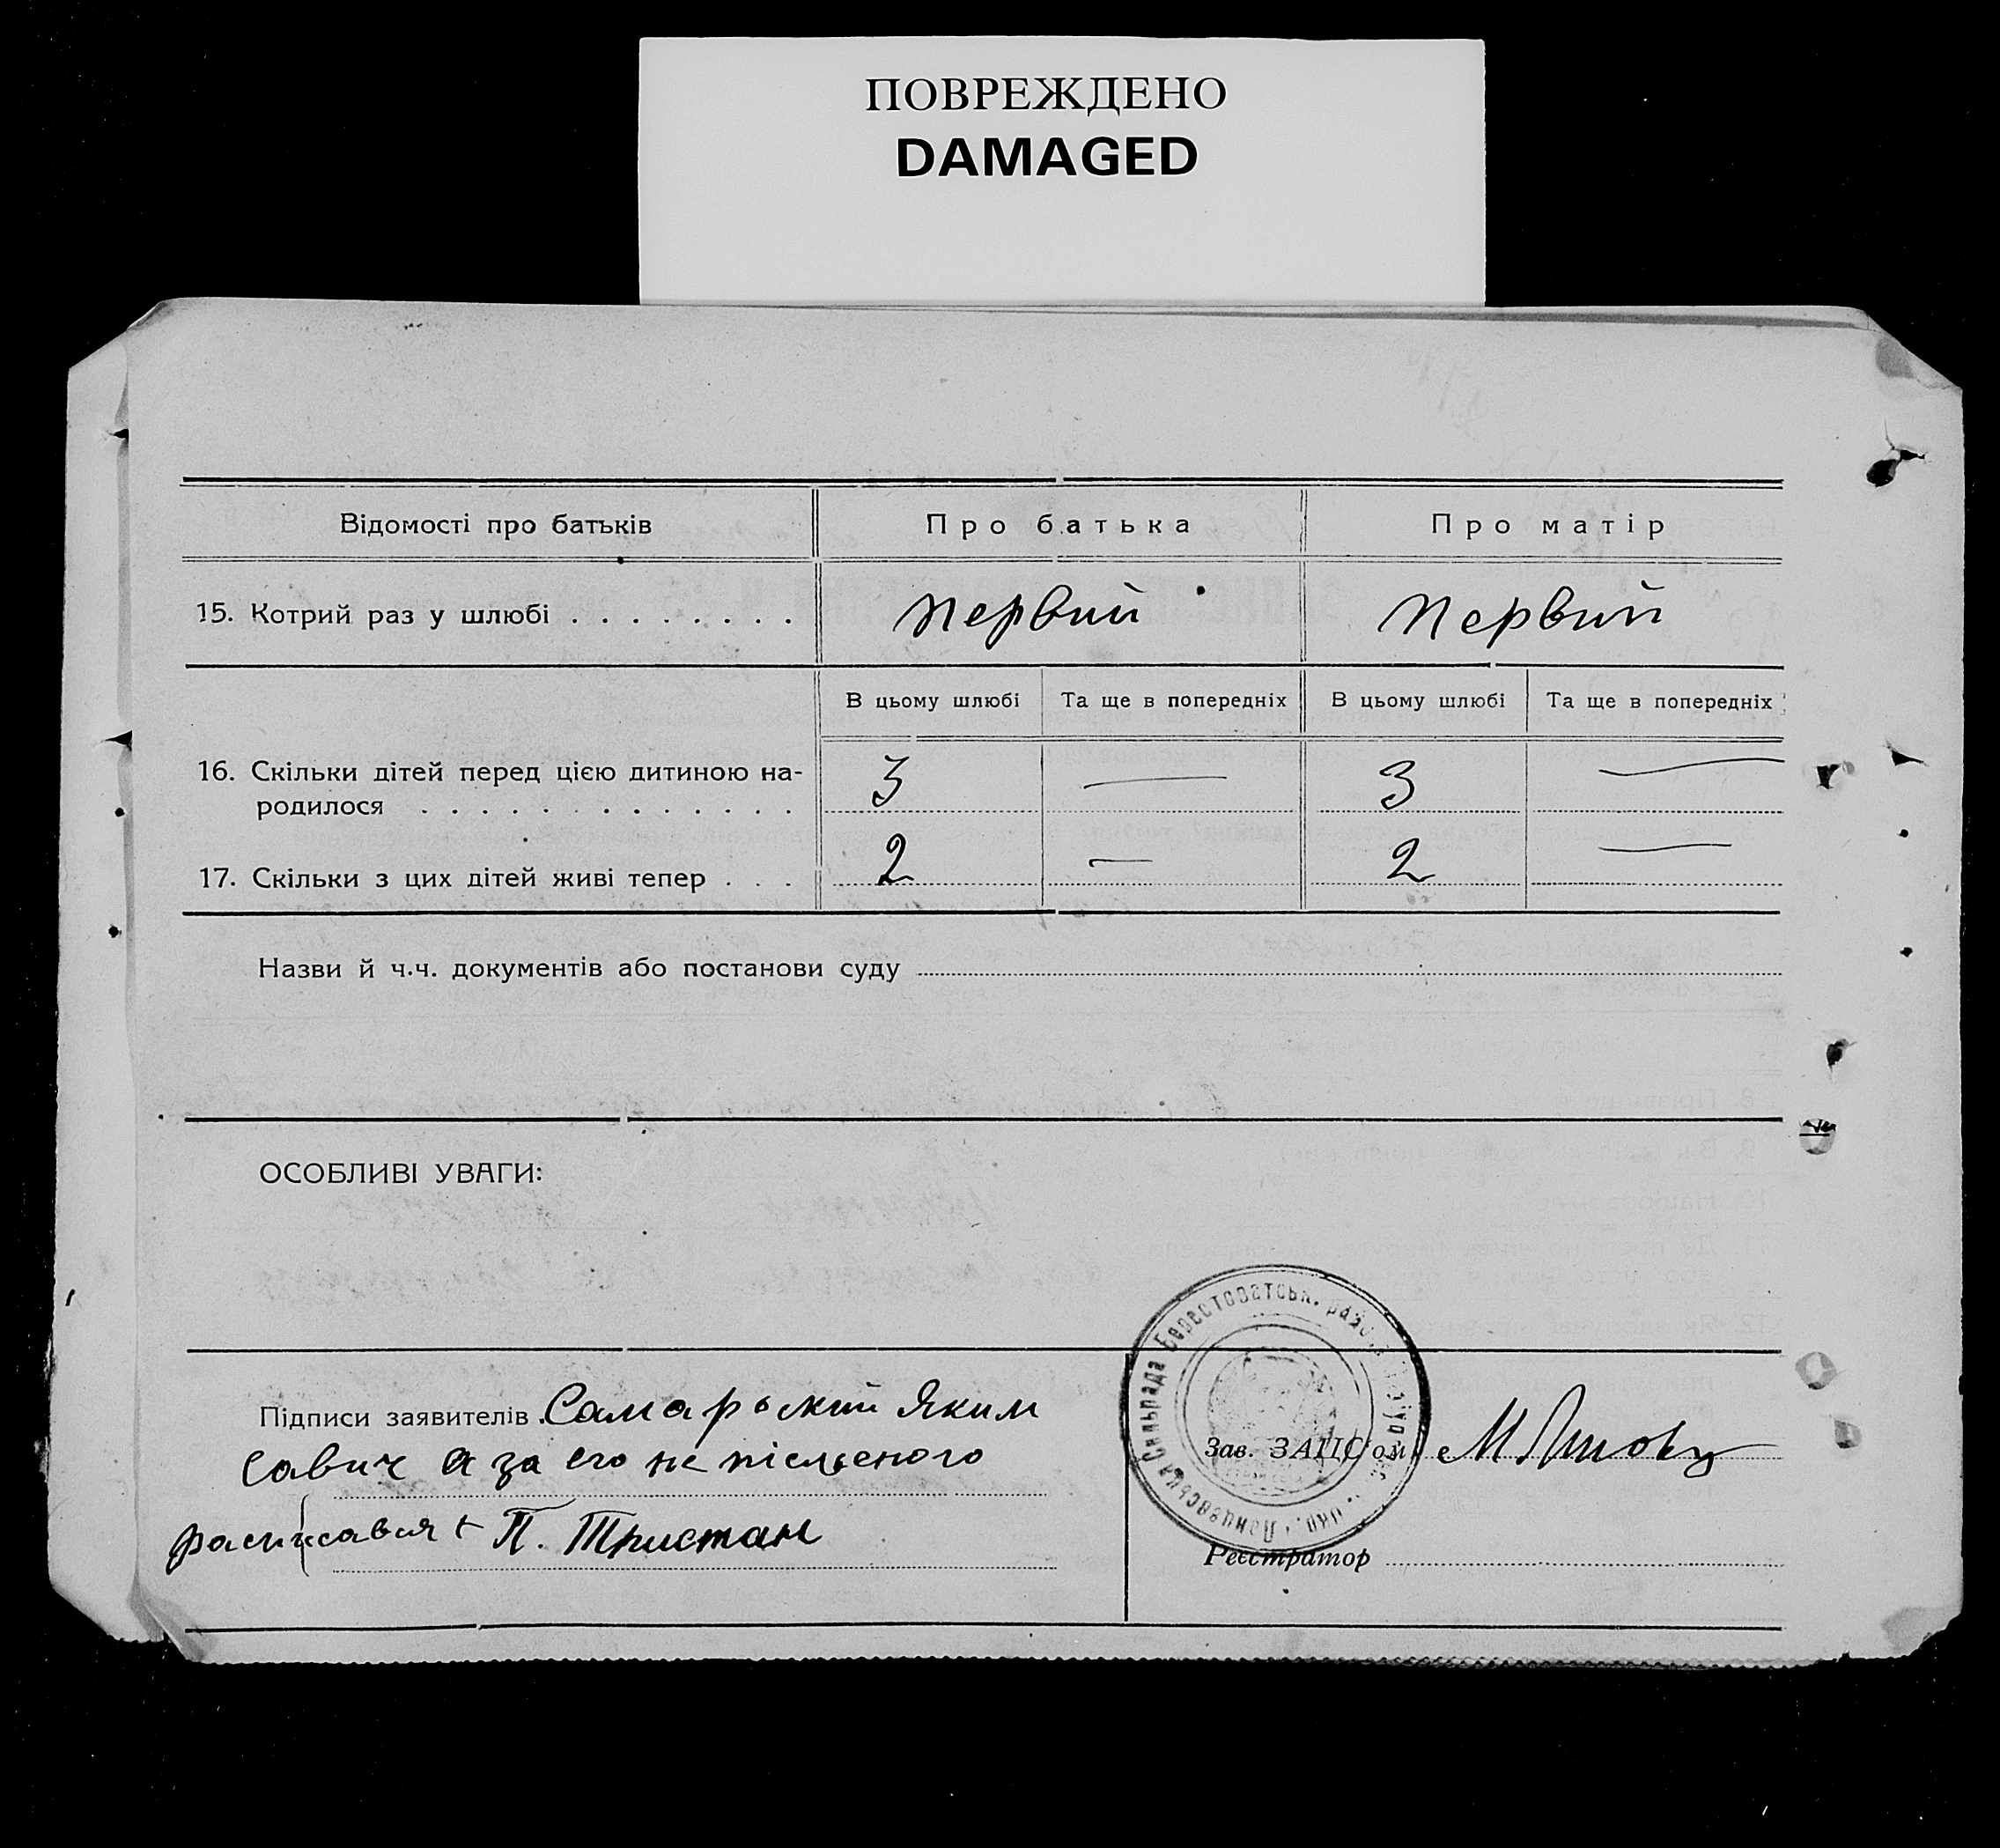 ПОВРЕЖДЕНО
DAMAGED
Відомості про батьків
Про батька
Про матір
15. Котрий раз у шлюбі . . . . . . . .
первий
первий
В цьому шлюбі
Та ще в попередніх
В цьому шлюбі
Та ще в попередніх
16. Скільки дітей перед цією дитиною на-
родилося . . . . . . . . . . . . .
3
—
3
—
17. Скільки з цих дітей живі тепер . . .
2
—
2
—
Назви й ч.ч. документів або постанови суду
ОСОБЛИВІ УВАГИ:
Підписи заявителів Самарський Яким
Савич а за его не письменого
расписався + П. Тристан
Сільрада Берестоватськ. район
Зав. ЗАПС'ом
Реєстратор